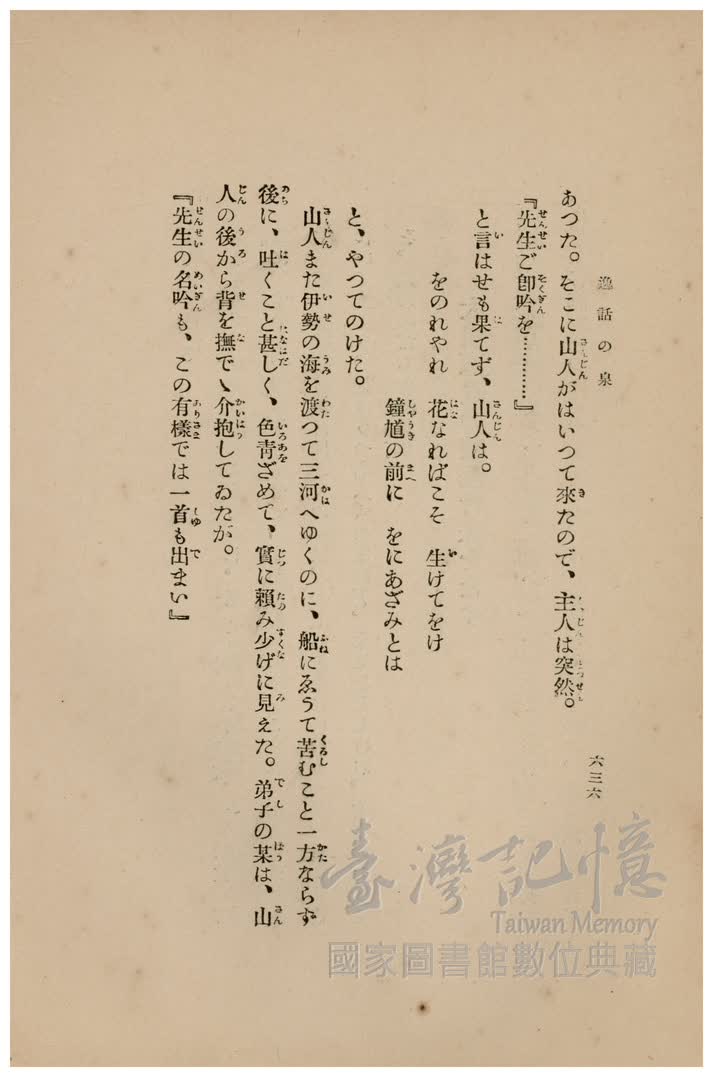 逸話の泉
六三六
あつた。そこに山人がはいつて來たので、主人は突然。
『先生ご卽吟を…………』
と言はせも果てず、山人は。
をのれやれ　花なればこそ　生けてをけ
鐘馗の前に　をにあざみとは
と、やつてのけた。
山人また伊勢の海を渡つて三河へゆくのに、船にゑうて苦むこと一方ならず
後に、吐くこと甚しく、色青ざめて、實に賴み少げに見えた。弟子の某は、山
人の後から背を撫でゝ介抱してゐたが。
『先生の名吟も、この有樣では一首も出まい』
臺灣記憶
Taiwan Memory
國家圖書館數位典藏